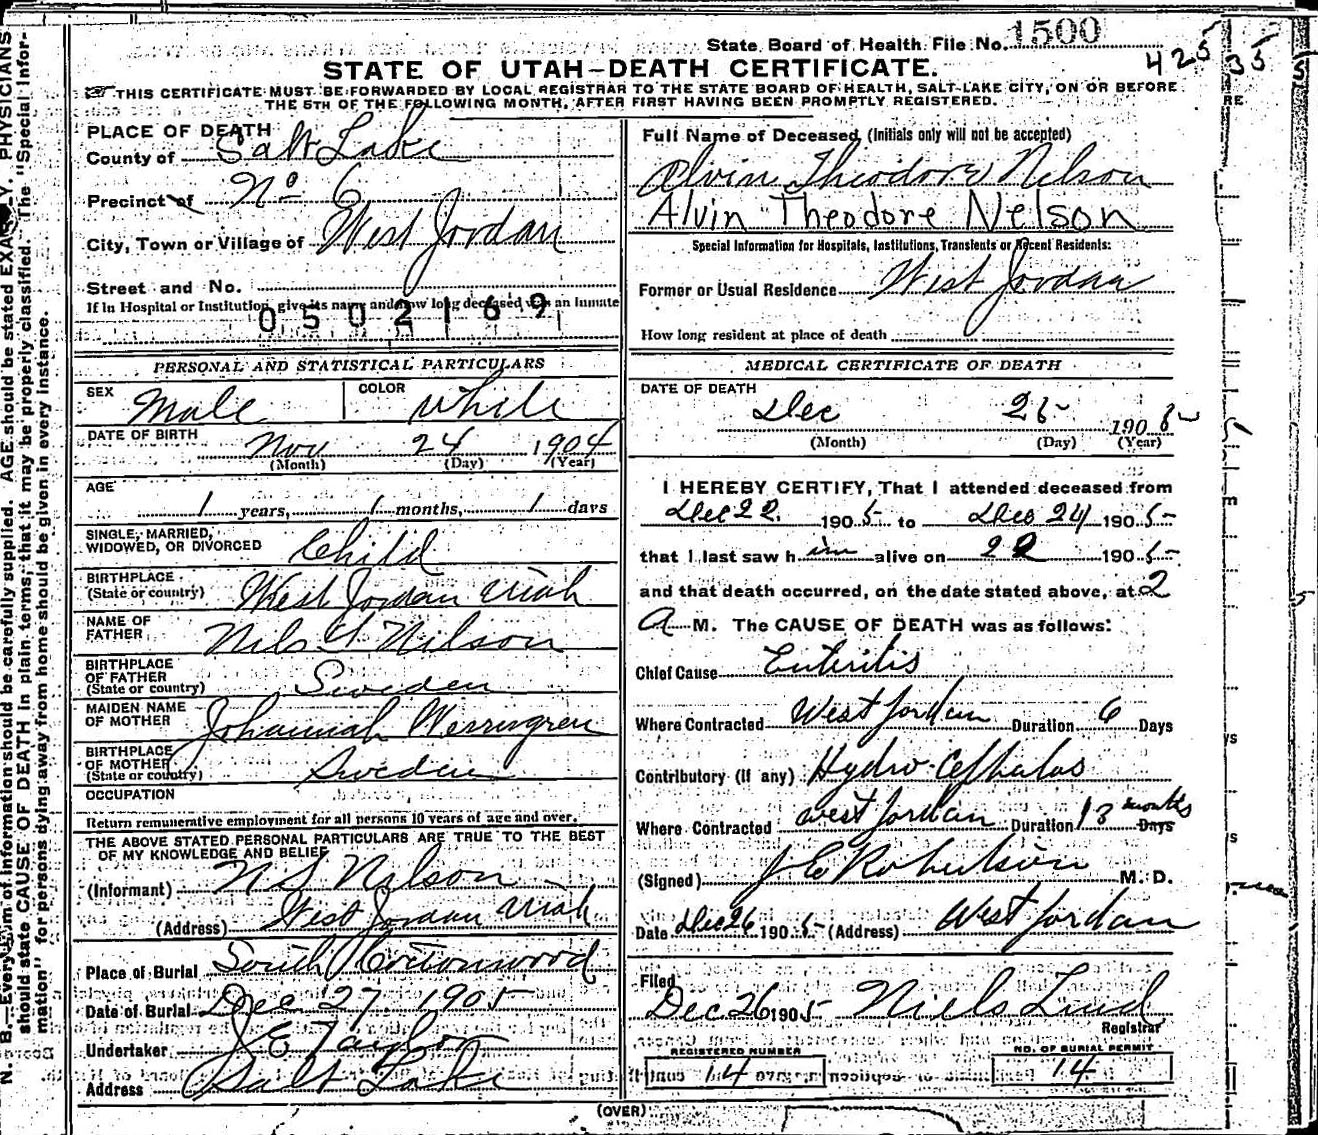 State Board of Health File No. 1500
425 35
STATE OF UTAH—DEATH CERTIFICATE.
THIS CERTIFICATE MUST BE FORWARDED BY LOCAL REGISTRAR TO THE STATE BOARD OF HEALTH, SALT LAKE CITY, ON OR BEFORE
THE 5TH OF THE FOLLOWING MONTH, AFTER FIRST HAVING BEEN PROMPTLY REGISTERED.
PLACE OF DEATH
County of Salt Lake
Precinct of No 6
City, Town or Village of West Jordan
Street and No.
If in Hospital or Institution, give its name and how long deceased was an inmate
0502169
Full Name of Deceased, (Initials only will not be accepted)
Alvin Theodore Nelson
Alvin Theodore Nelson
Special Information for Hospitals, Institutions, Transients or Recent Residents:
Former or Usual Residence West Jordan
How long resident at place of death
PERSONAL AND STATISTICAL PARTICULARS
SEX Male COLOR White
DATE OF BIRTH Nov 24 1904
(Month) (Day) (Year)
AGE
1 years, 1 months, 1 days
SINGLE, MARRIED,
WIDOWED, OR DIVORCED Child
BIRTHPLACE
(State or country) West Jordan Utah
NAME OF
FATHER Nils Nilson
BIRTHPLACE
OF FATHER
(State or country) Sweden
MAIDEN NAME
OF MOTHER Johannah
BIRTHPLACE
OF MOTHER
(State or country) Sweden
OCCUPATION
Return remunerative employment for all persons 10 years of age and over.
THE ABOVE STATED PERSONAL PARTICULARS ARE TRUE TO THE BEST
OF MY KNOWLEDGE AND BELIEF
(Informant) Nilson
(Address) West Jordan Utah
Place of Burial South Cottonwood
Date of Burial Dec 27. 1905
Undertaker J E Taylor
Address Salt Lake
MEDICAL CERTIFICATE OF DEATH
DATE OF DEATH
Dec 25 1905
(Month) (Day) (Year)
I HEREBY CERTIFY, That I attended deceased from
Dec 22. 1905 to Dec 24 1905
that I last saw him alive on 22 1905
and that death occurred, on the date stated above, at 2
A M. The CAUSE OF DEATH was as follows:
Chief Cause Enteritis
Where Contracted West Jordan Duration 6 Days
Contributory (if any) Hydro-Cephalos
Where Contracted West Jordan Duration 13 months Days
(Signed) J E Robertson M. D.
Date Dec 26 1905 (Address) West Jordan
Filed
Dec 26 1905 Niels Lind
Registrar
REGISTERED NUMBER
14
NO. OF BURIAL PERMIT
14
(OVER)
N. B.—Every item of information should be carefully supplied. AGE should be stated EXACTLY. PHYSICIANS
should state CAUSE OF DEATH in plain terms, that it may be properly classified. The "Special Infor-
mation" for persons dying away from home should be given in every instance.